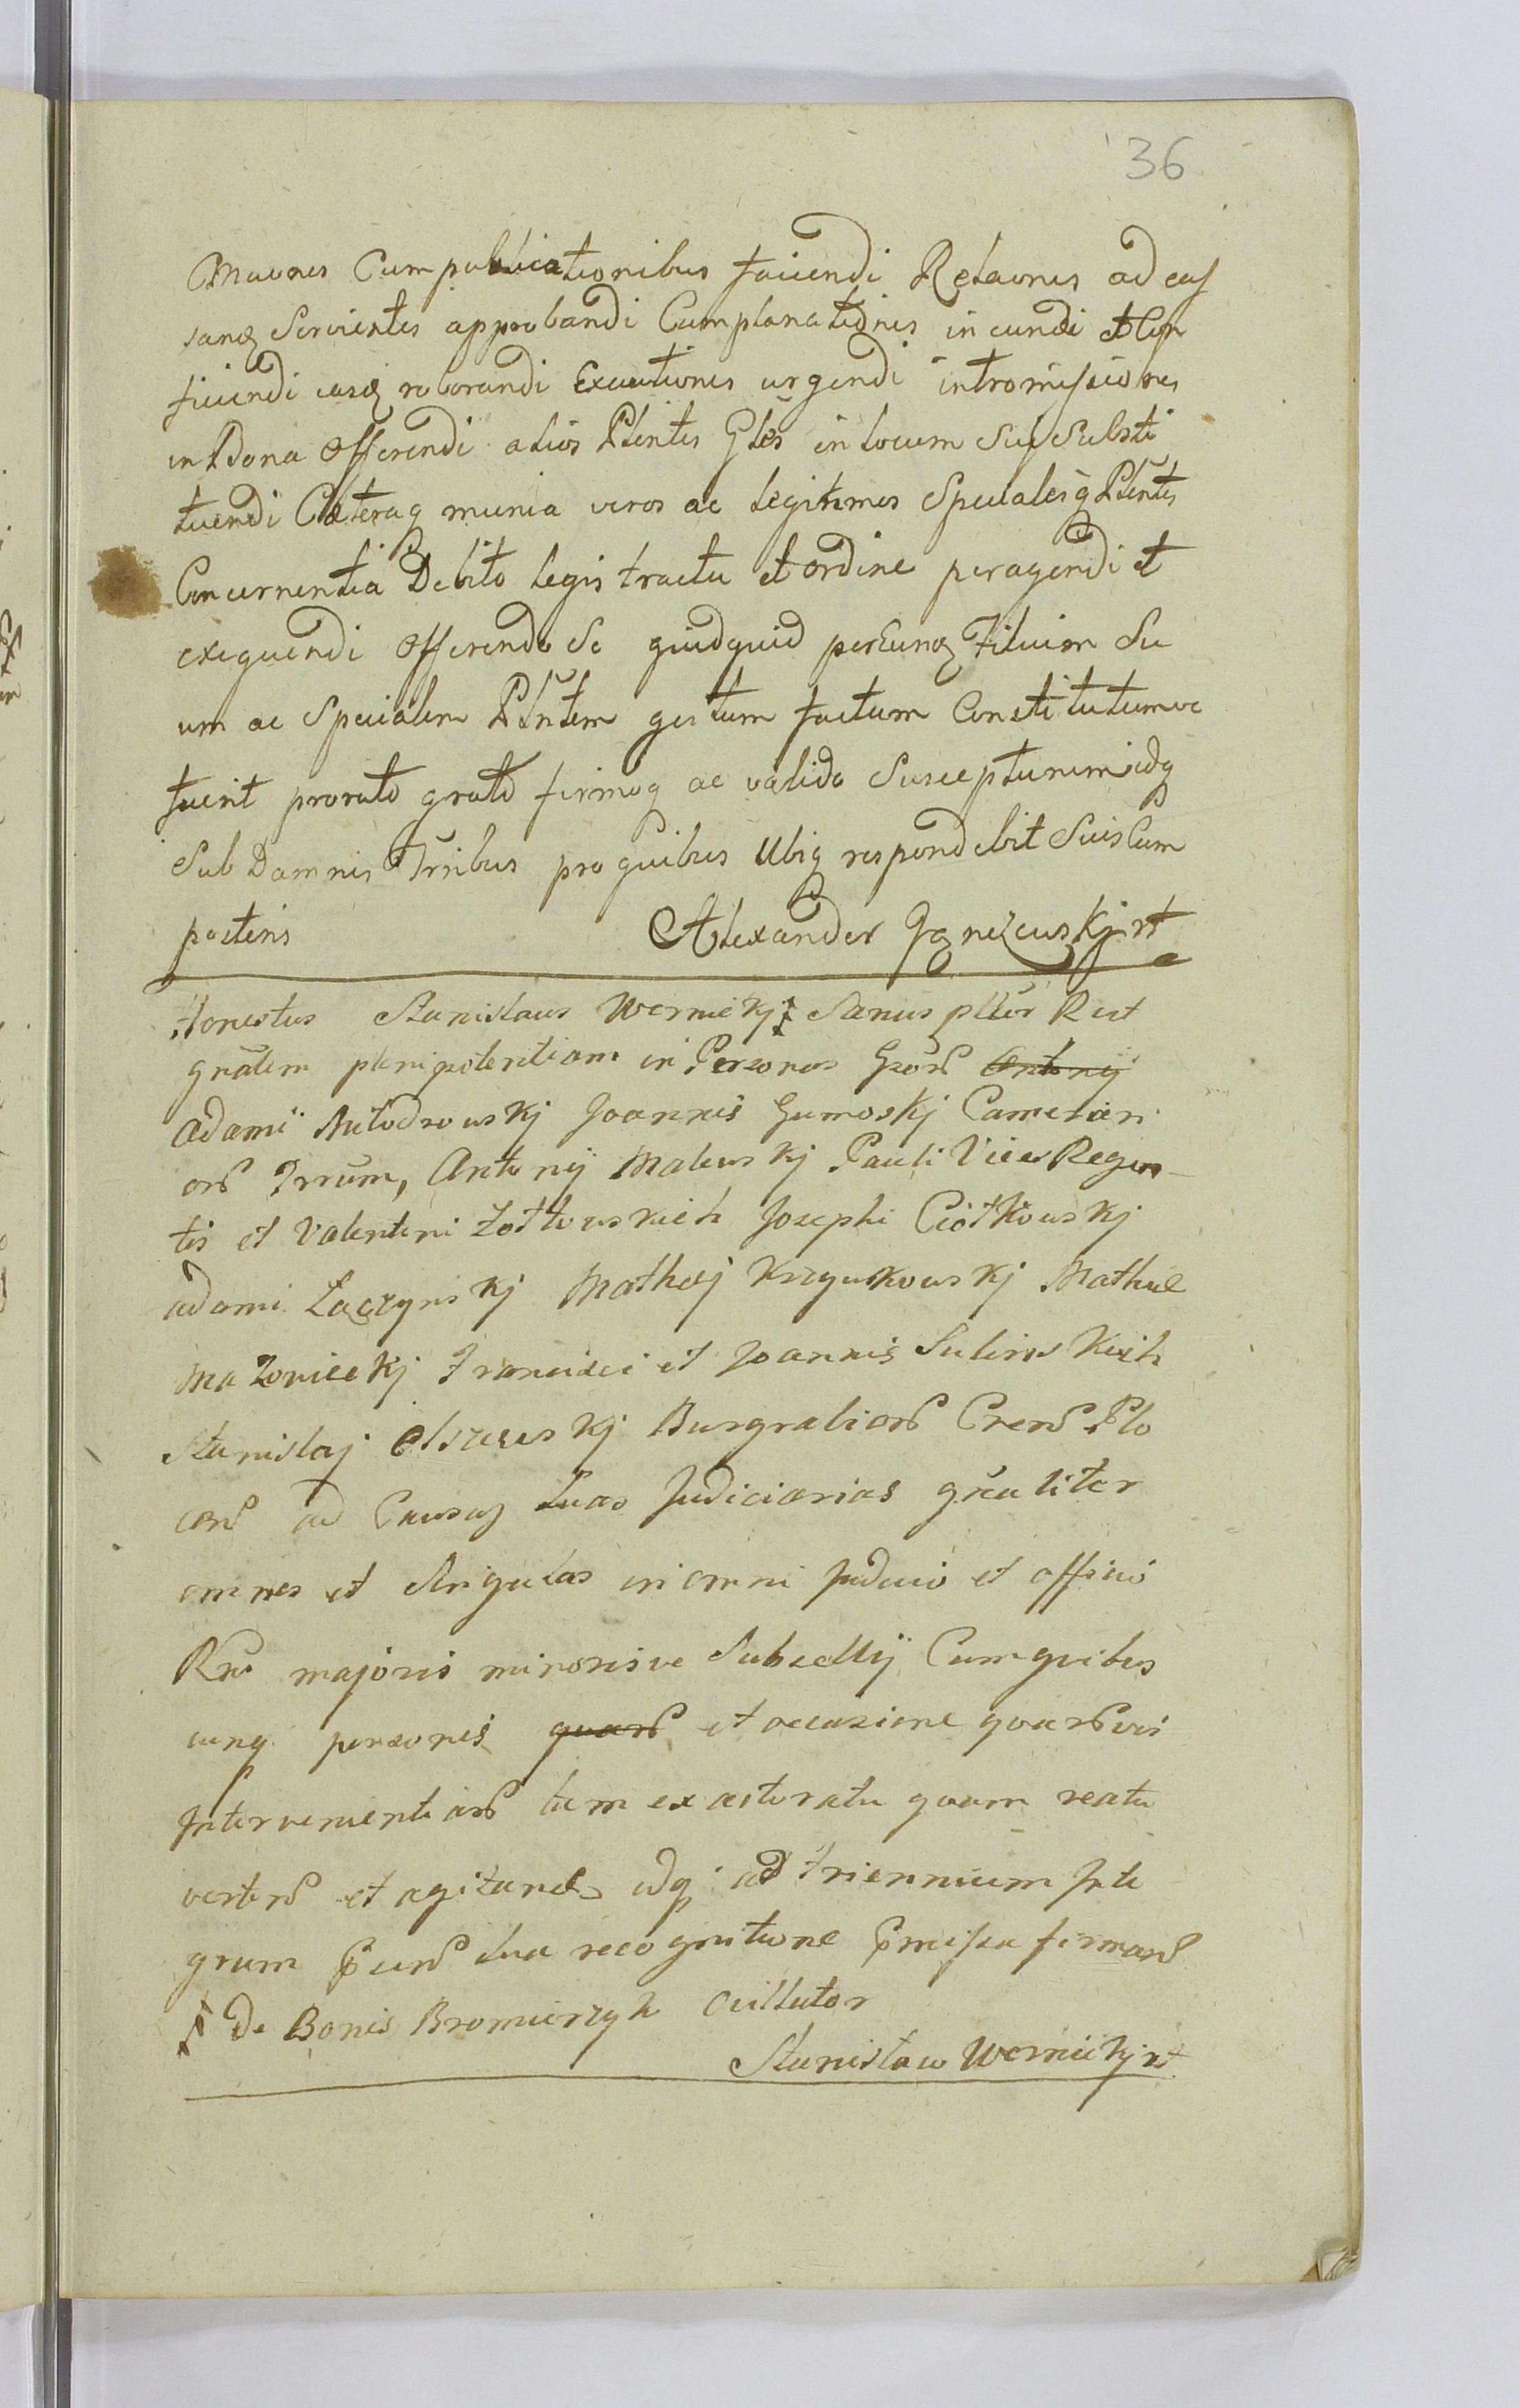 36
Cmaones Cum publicationibus faciendi Relaones ad eas
sanq Servientes approbandi Complanationes in eundi et Con
ficiendi easq roborandi Executiones urgendi intromissiones
in Bona Offerendi alios Plentes Gles in locum Sui Substi
tuendi Cæteraq munia veros ac legitimos Specialesq Plentes
Concernentia Debito legis tractu et ordine peragendi et
exequendi Offerendo Se quidquid per Eunq Filium Su
um ac Specialem Plntem gestum factum Constitutumve
fuerit pro rato grato firmoq ac valido Suscepturum idq
Sub Damnis Trribus pro quibus Ubiq respondebit Suis Cum
posteris Alexander rt
Honestus Stanislaus Wernickj Sanus pttur Rest
gnalem plenipotentiam in Personas Gsor Antonij
Adami Młodzowskj Joannis Gumoskj Camerari
or Trrum, Antonij Malewskj Pauli Vices Regen
tis et Valentini Zołtowskich Josephi Ciołkowskj
Adami Laczynskj Mathej Krzywkowskj Mathiæ
Mazowieckj Francisci et Joannis Sulinskich
Stanislaj Olszewskj Burgrabior Cren Plo
cen ad Causas Suas Judiciarias gnaliter
omnes et Singulas in omni Judicio et officio
Rni majoris minorisve Subsellij Cum quibus
cunq personis quar et occasione quarvis
Intervenientiar tam ex actoratu quam reatu
verten et agitand idq ad Triennium Inte
grum sua recognitione pmissa
De Bonis Bromierzyk
Stanisław Wernickj rt